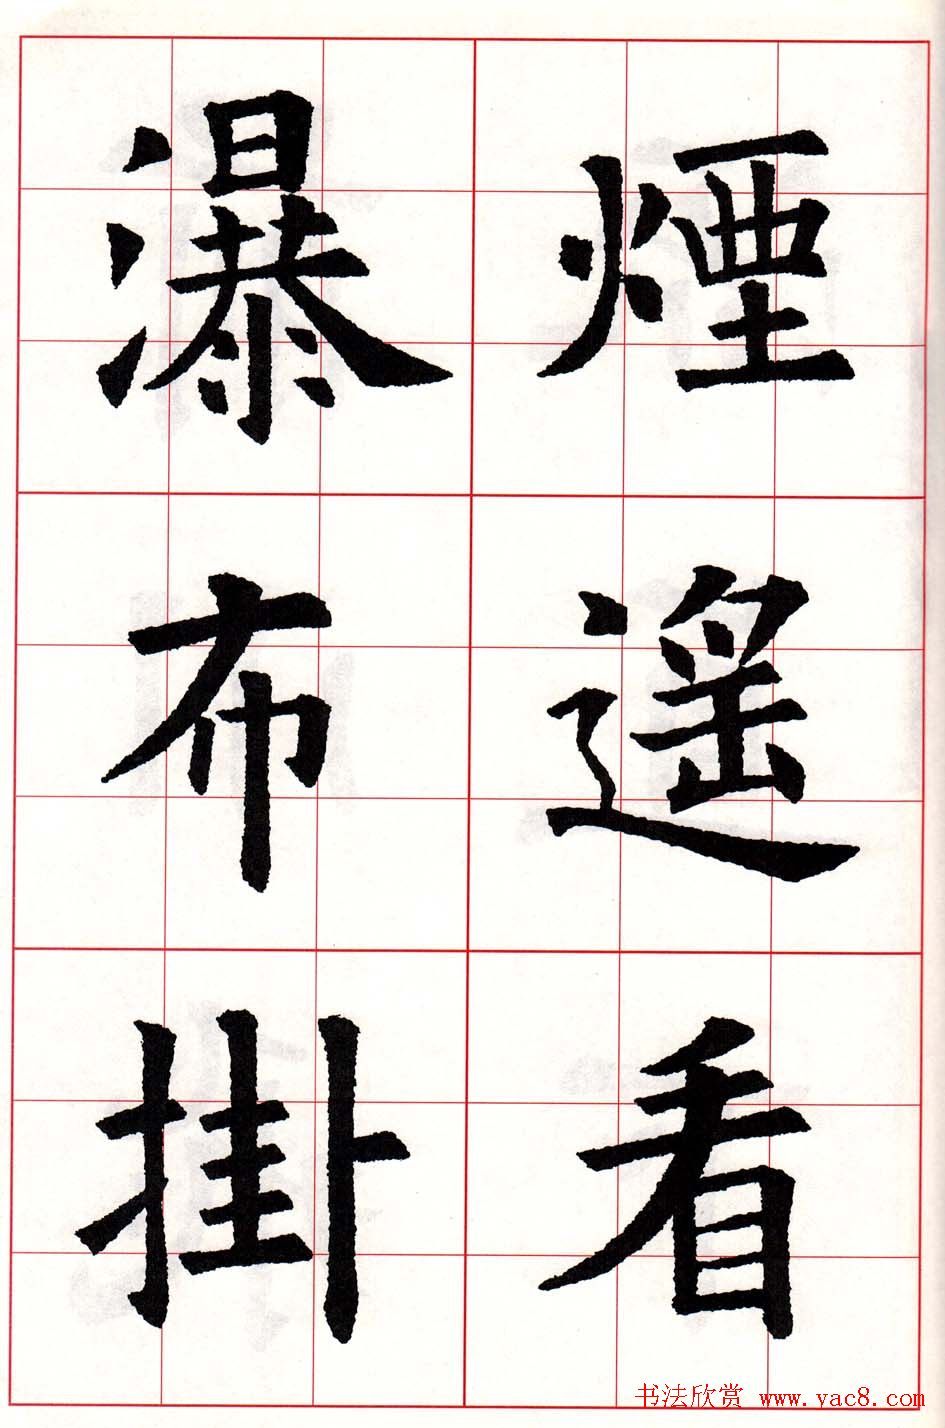 煙遥看
瀑布掛
书法欣赏 www.yac8.com